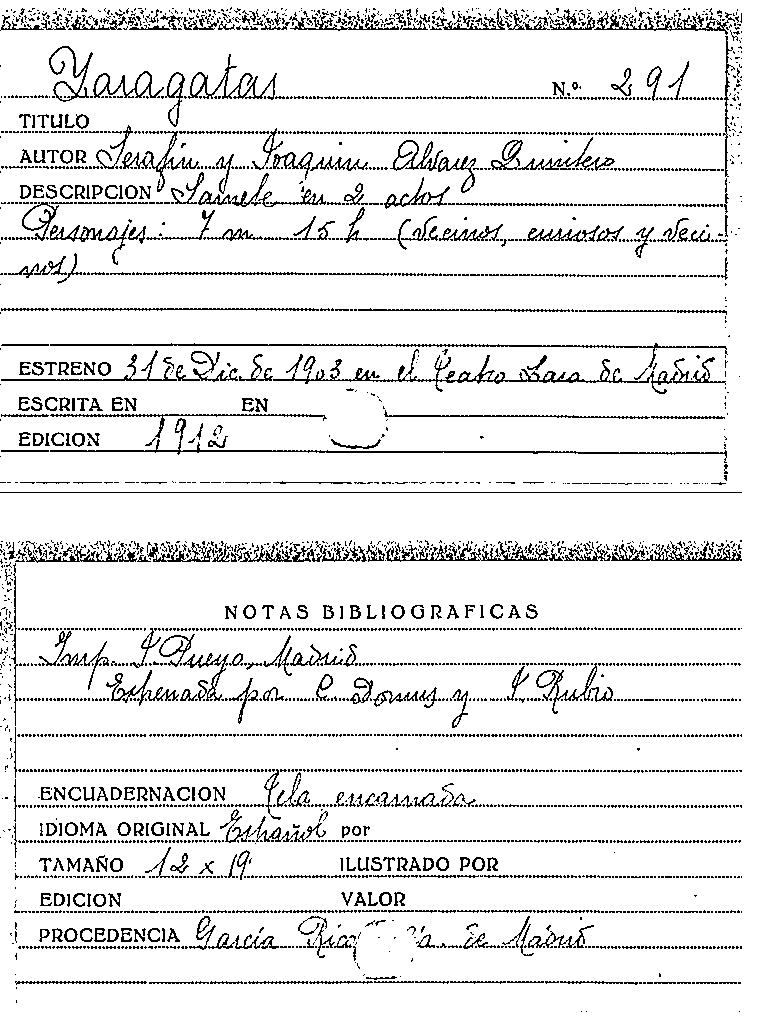 Zaragatas N.º 291
TITULO
AUTOR Serafin y Joaquin Alvarez Quintero
DESCRIPCION Sainete en 2 actos
Personajes: 7 m 15 h (vecinos, curiosos y veci-
nos)
ESTRENO 31 de Dic de 1903 en el Teatro Lara de Madrid
ESCRITA EN EN
EDICION 1912
NOTAS BIBLIOGRAFICAS
Imp. J Pueyo, Madrid
Estrenada por C. y J Rubio
ENCUADERNACION Tela encarnada
IDIOMA ORIGINAL Español por
TAMAÑO 12 x 19 ILUSTRADO POR
EDICION VALOR
PROCEDENCIA García Rico de Madrid